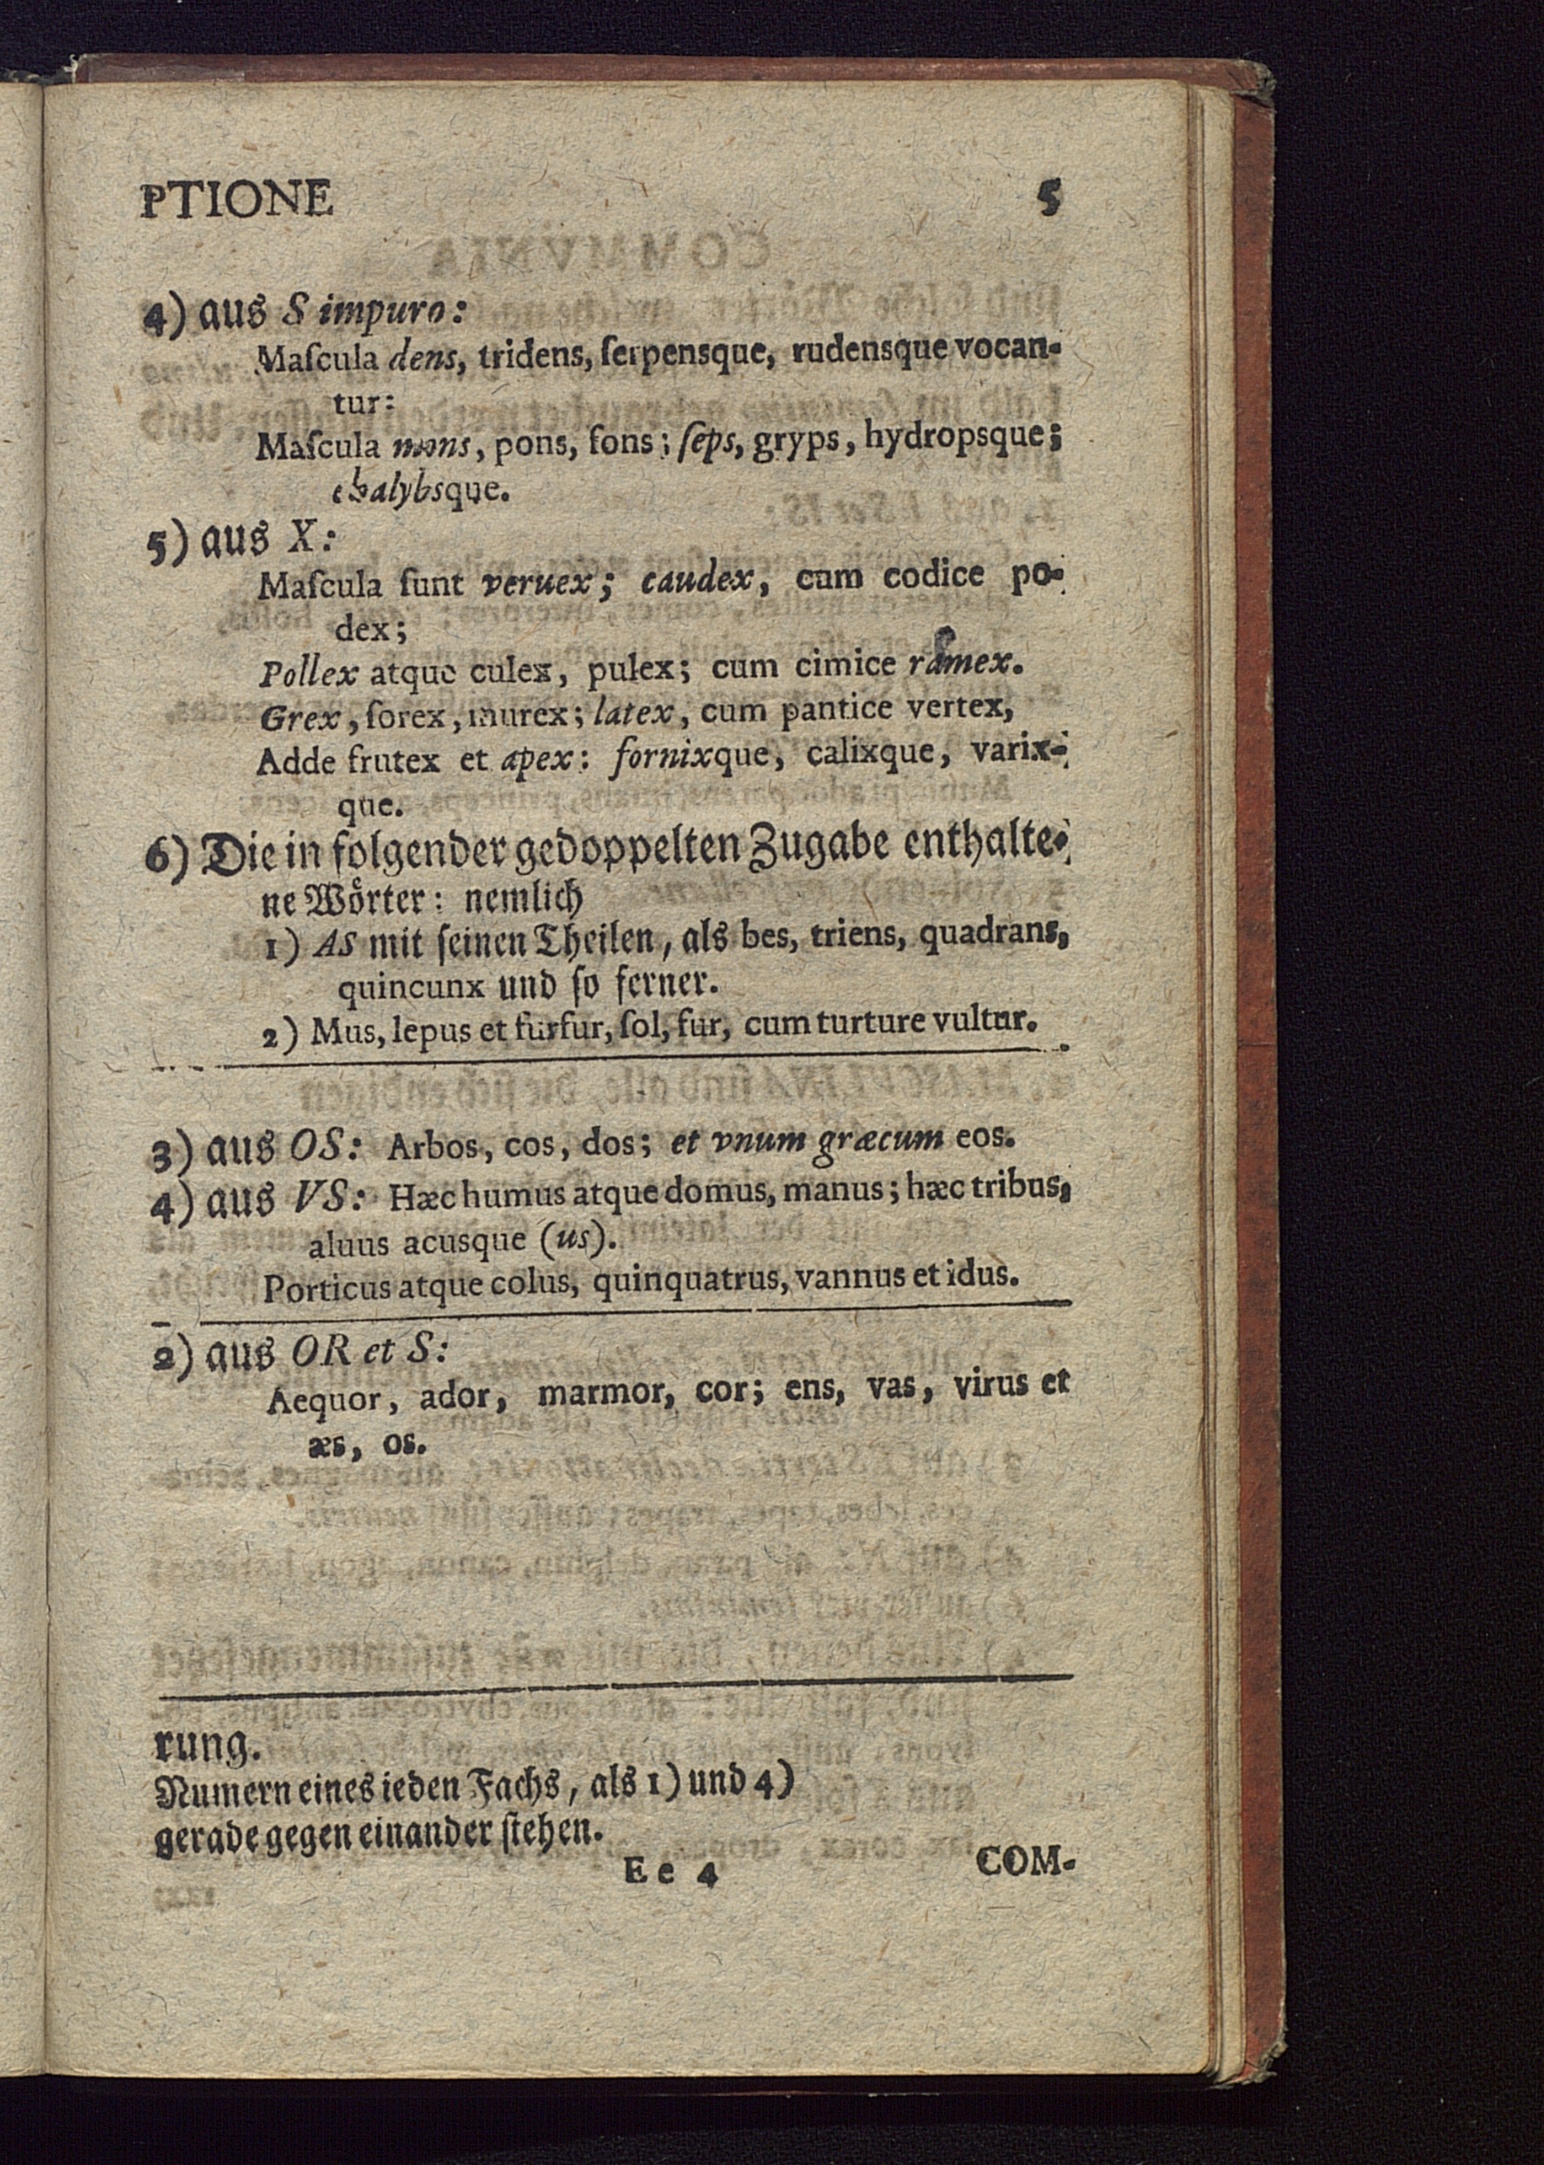 PTIONE 5
4) aus S impuro:
Maſcula dens, tridens, ſerpensque, rudensque vocan-
tur:
Maſcula mons, pons, fons; ſeps, gryps, hydropsque;
chalybsque.
5) aus X:
Maſcula ſunt veruex; caudex, cum codice po-
dex;
Pollex atque culex, pulex; cum cimice ramex.
Grex, ſorex, murex; latex, cum pantice vertex,
Adde frutex et apex: fornixque, calixque, varix-
que.
6) Die in folgender gedoppelten Zugabe enthalte-
ne Wörter: nemlich
1) AS mit ſeinen Theilen, als bes, triens, quadrans,
quincunx und ſo ferner.
2) Mus, lepus et furfur, ſol, fur, cum turture vultur.
3) aus OS: Arbos, cos, dos; et vnum græcum eos.
4) aus VS: Hæc humus atque domus, manus; hæc tribus,
aluus acusque (us).
Porticus atque colus, quinquatrus, vannus et idus.
2) aus OR et S:
Aequor, ador, marmor, cor; ens, vas, virus et
æs, os.
rung.
Numern eines ieden Fachs, als 1) und 4)
gerade gegen einander ſtehen.
Ee 4 COM-